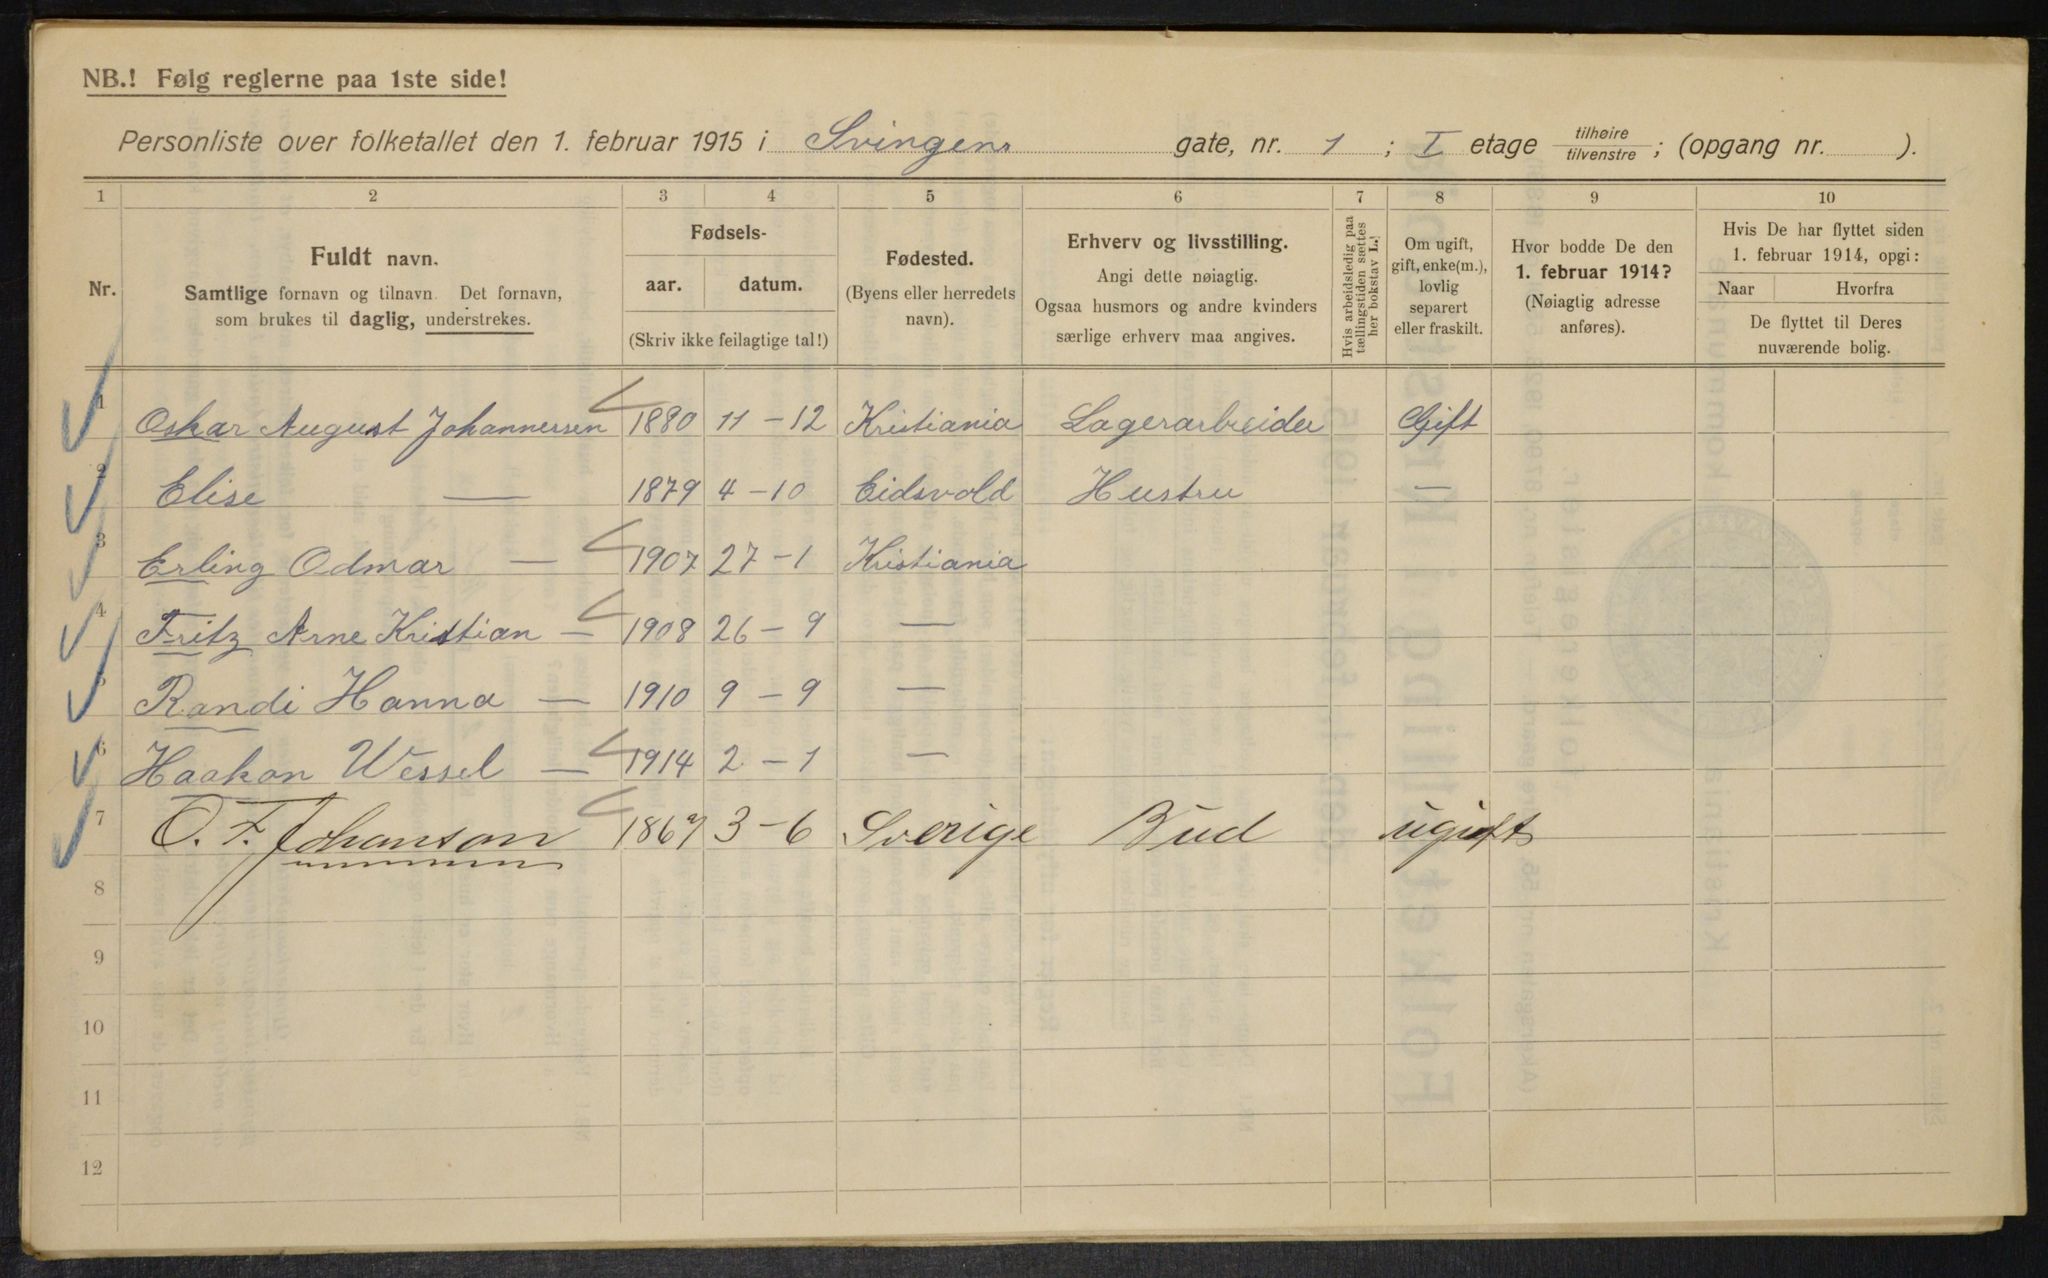 NB.! Følg reglerne paa 1ste side!
Personliste over folketallet den 1. februar 1915 i Svingen gate, nr. 1 ; I etage tilhøire tilvenstre ; (opgang nr. ).
1 2 3 4 5 6 7 8 9 10
Nr.
Fuldt navn.
Samtlige fornavn og tilnavn. Det fornavn,
som brukes til daglig, understrekes.
Fødsels-
aar. datum.
(Skriv ikke feilagtige tal!)
Fødested.
(Byens eller herredets
navn).
Erhverv og livsstilling.
Angi dette nøiagtig.
Ogsaa husmors og andre kvinders
særlige erhverv maa angives.
Hvis arbeidsledig paa
tællingstiden sættes
her bokstav L.!
Om ugift,
gift, enke(m.),
lovlig
separert
eller fraskilt.
Hvor bodde De den
1. februar 1914?
(Nøiagtig adresse
anføres).
Hvis De har flyttet siden
1. februar 1914, opgi:
Naar Hvorfra
De flyttet til Deres
nuværende bolig.
1 Oskar August Johannessen 1880 11 – 12 Kristiania Lagerarbeider Gift
2 Elise — 1879 4 – 10 Eidsvold Hustru —
3 Erling Odmar — 1907 27 – 1 Kristiania
4 Fritz Arne Kristian — 1908 26 – 9 —
5 Randi Hanna — 1910 9 – 9 —
6 Haakon Wessel — 1914 2 – 1 —
7 O. F. Johanson 1869 3 – 6 Sverige Bud ugift
8
9
10
11
12